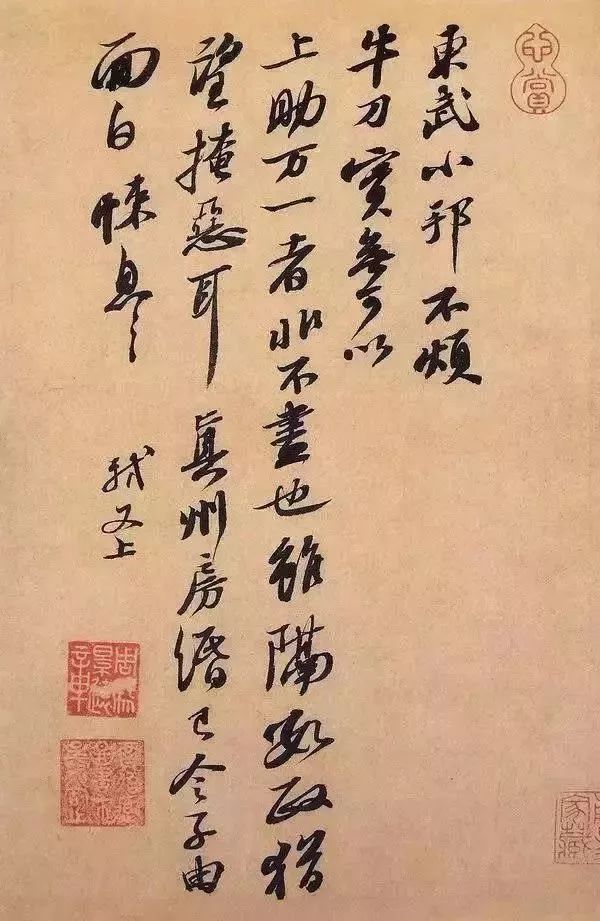 東武小邦不煩
牛刀實無可以
上助万一者非不盡也雖隔數政猶
望掩惡耳 真州房緡已令子由
面白悚息々
軾又上